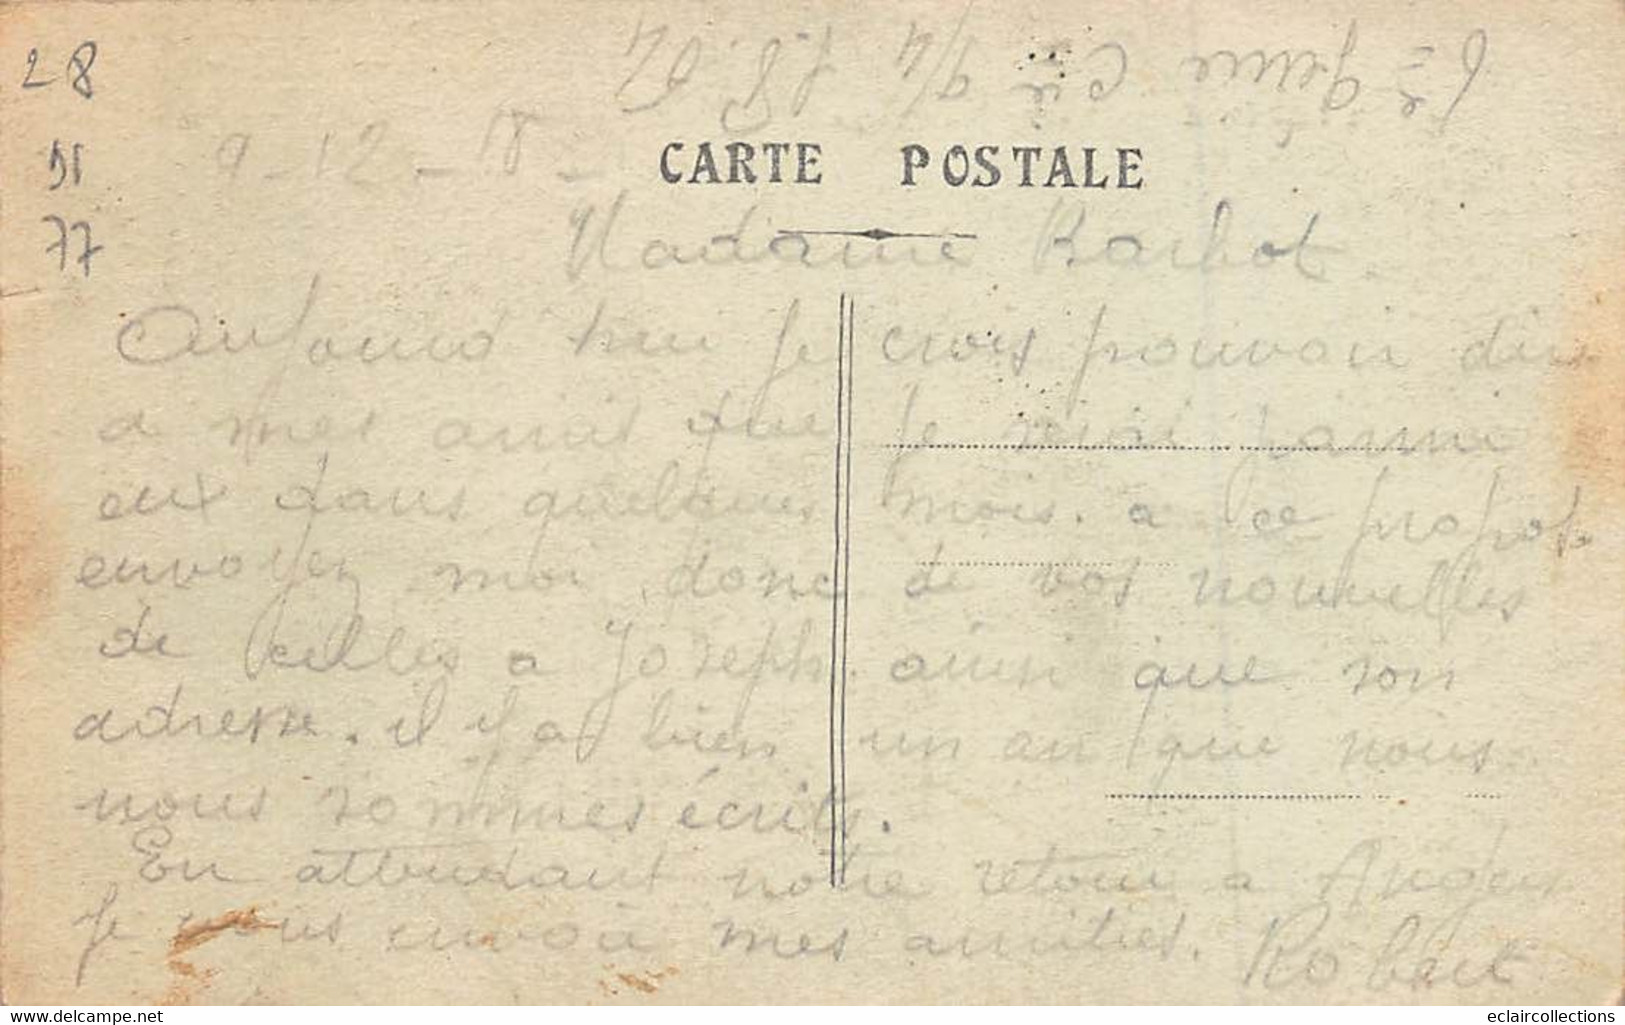 6e génie Cie 9/4
28
51
77
9-12-18-
CARTE POSTALE
Madame Barbot
Aujourd hui je crois pouvoir dire
a mes amis que je serai parmi
eux dans quelques mois. a ce propos
envoyez moi donc de vos nouvelles
de celles a Joseph. ainsi que son
adresse. il y a bien un an que nous
nous sommes écrits.
En attendant notre retour a Angers
je vous envoie mes amitiés. Robert
www.delcampe.net
eclaircollections